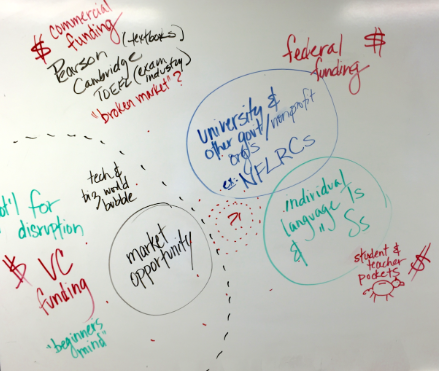 $ commercial
funding
Pearson (textbooks)
Cambridge
TOEFL (exam industry)
"broken market"?
federal $
funding
university &
other gov't/nonprofit
orgs
ex. NFLRCs
tech &
biz world
bubble
individual
language Ts
& " Ss
pot'l for
disruption
market
opportunity
$ VC
funding
student &
teacher
pockets $
"beginners
mind"